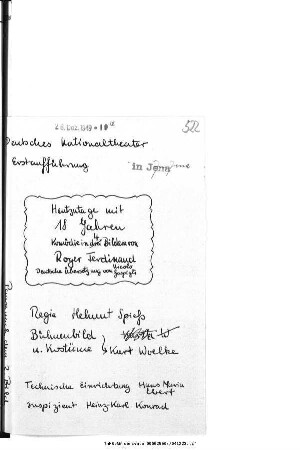 26. Dez. 1949 - 19
522
Deutsches Nationaltheater
Erstaufführung
in Jena
Heutzutage mit
18 Jahren
Komödie in drei Bildern von
Roger Ferdinand
Deutsche Übersetzung von
Regie Helmut Spieß
Bühnenbild
u. Kostüme } Kurt Woelke
Technische Einrichtung Hans Maria
Ebert
Inspizient Heinz-Karl Konrad